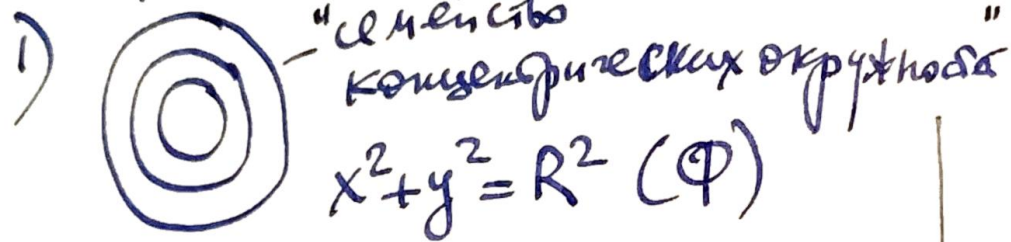 1) "семейство
концентрических окружностей"
x²+y²=R² (Ф)